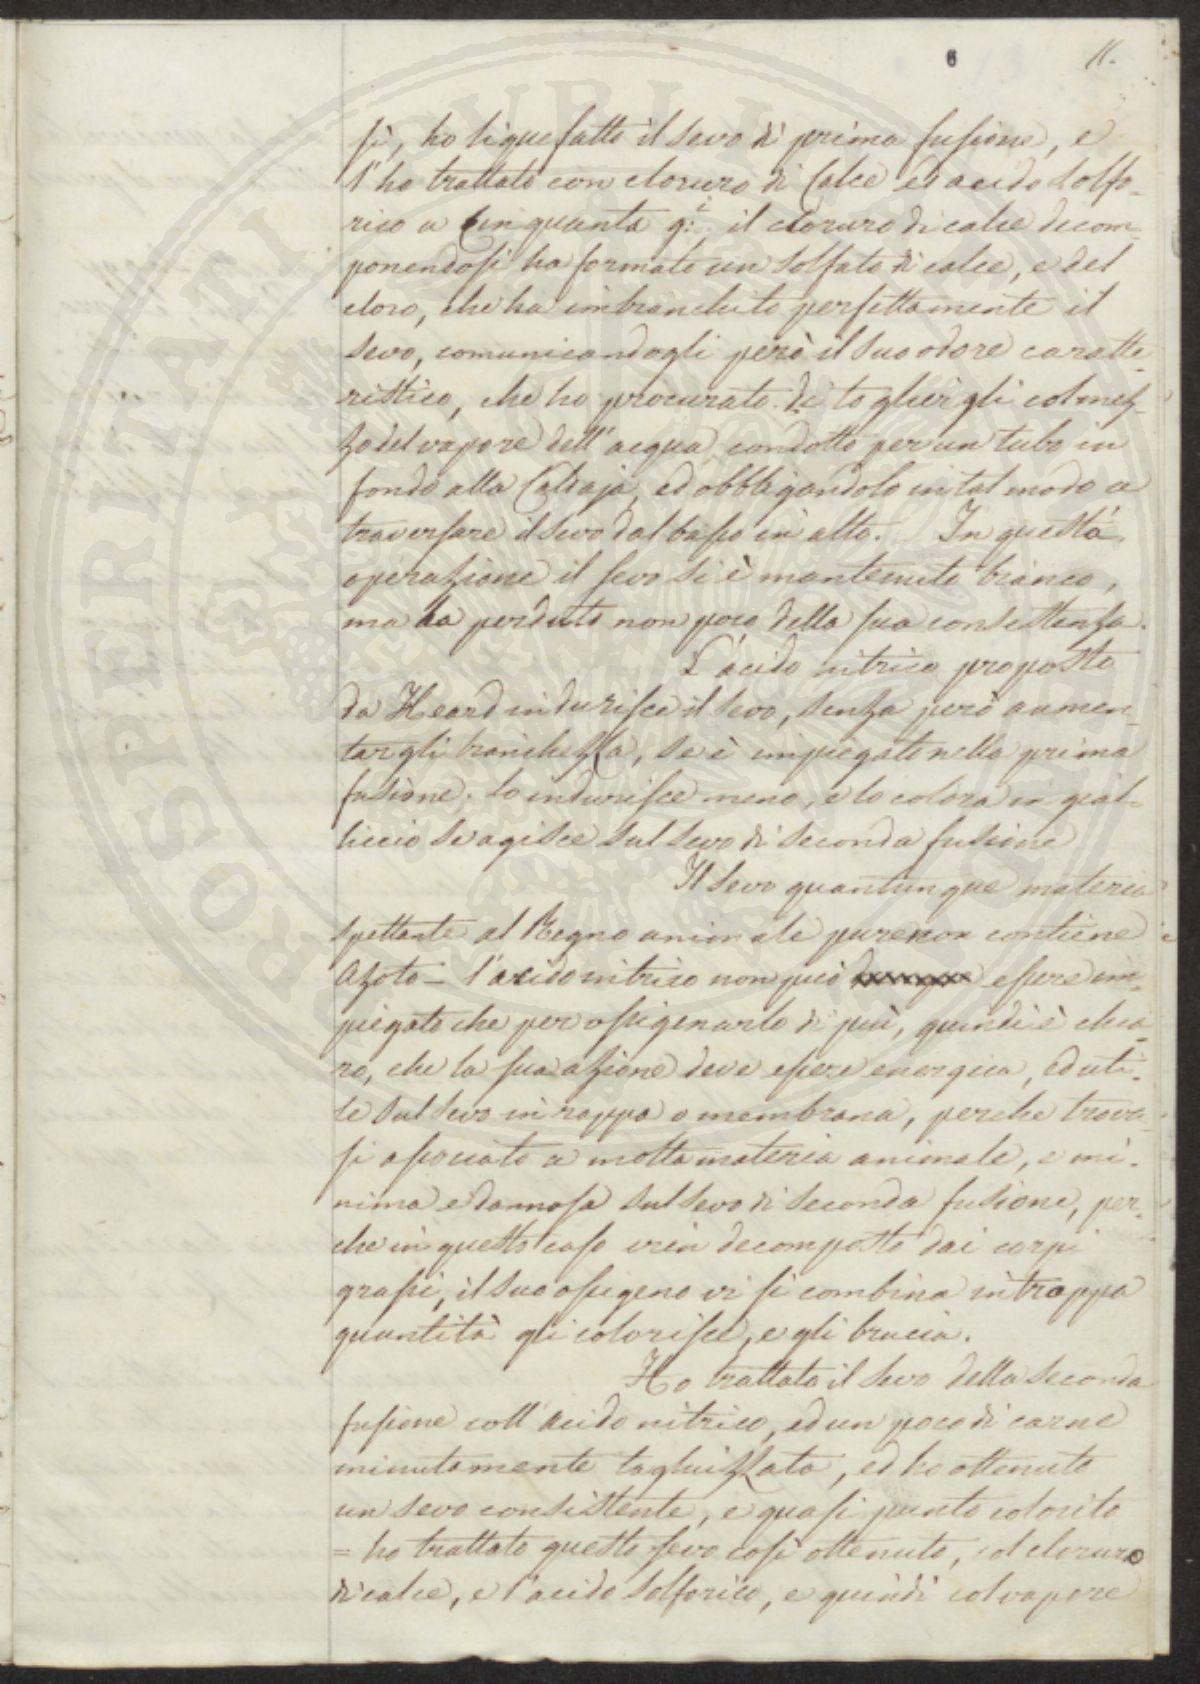 6 11.
si, ho liquefatto il sevo di prima fusione, e
l'ho trattato con cloruro di Calce ed acido solfo-
rico a Cinquanta g:i, il cloruro di calce decom-
ponendosi ha formato un solfato di calce, e del
cloro, che ha imbianchito perfettamente il
sevo, comunicandogli però il suo odore caratte-
ristico, che ho procurato di toglier gli col mez-
zo del vapore dell'acqua condotto per un tubo in
fondo alla Caldaja, ed obbligandolo in tal modo a
traversare il sevo dal basso in alto. In questa
operazione il sevo si è mantenuto bianco,
ma ha perduto non poco della sua consistenza.
L'acido nitrico proposto
da Heard indurisce il sevo, senza però aumen-
targli bianchezza, se è impiegato nella prima
fusione; lo indurisce meno, e lo colora in gial-
liccio se agisce sul sevo di seconda fusione
Il sevo quantunque materia
spettante al Regno animale pure non contiene
Azoto - l'acido nitrico non può essere im-
piegato che per ossigenarlo di più, quindi è chia-
ro, che la sua azione deve essere energica, ed uti-
le sul sevo in rappa o membrana, perche trova-
si associato a molta materia animale, e mi-
nima e dannosa sul sevo di seconda fusione, per-
che in questo caso vien decomposto dai corpi
grassi, il suo ossigeno vi si combina in troppa
quantità gli colorisce, e gli brucia.
Ho trattato il sevo della seconda
fusione coll'acido nitrico, ed un poco di carne
minutamente tagliuzzata, ed ho ottenuto
un sevo consistente, e quasi punto colorito
= ho trattato questo sevo così ottenuto, col cloruro
di calce, e l'acido solforico, e quindi col vapore
PROSPERITATI PUBLICAE